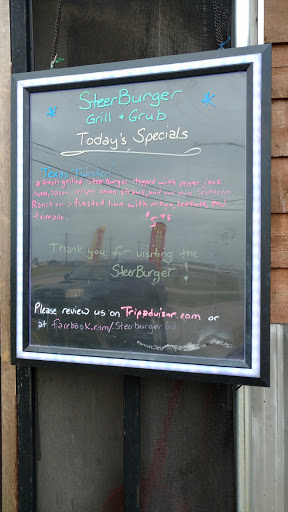 SteerBurger
Grill + Grub
Today's Specials
Texas Twister
a fresh grilled SteerBurger topped with pepper jack
cheese, bacon, crispy onion straws, and our own
Ranch on a toasted bun with mayo, lettuce, and
tomato.
$5.95
Thank you for visiting the
SteerBurger !
Please review us on Tripadvisor.com or
at facebook.com/Steerburger